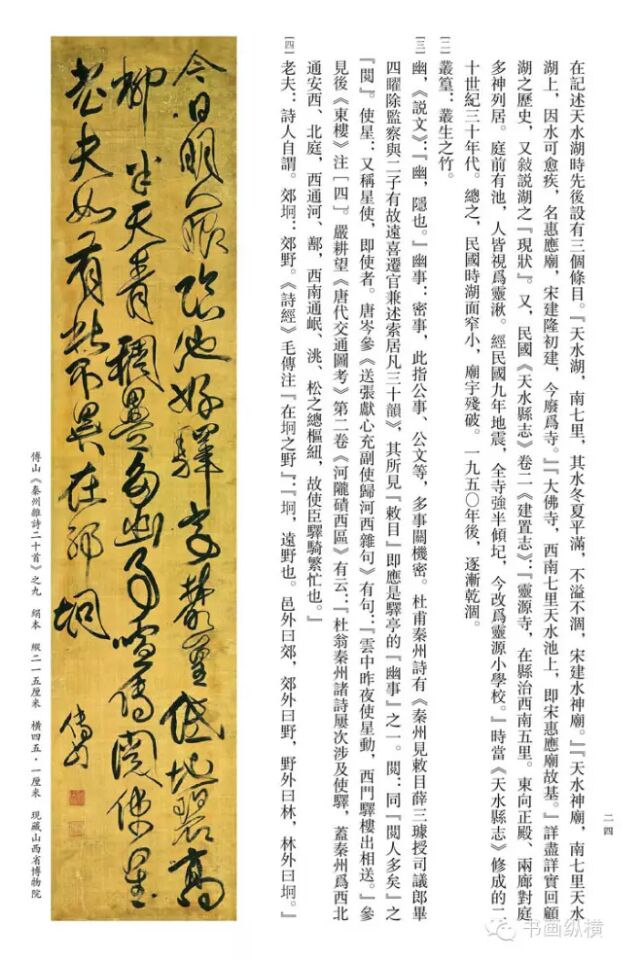 在記述天水湖時先後設有三個條目。『天水湖，南七里，其水冬夏平滿，不溢不涸，宋建水神廟。』『天水神廟，南七里天水
湖上，因水可愈疾，名惠應廟，宋建隆初建，今廢爲寺。』『大佛寺，西南七里天水池上，即宋惠應廟故基。』詳盡詳實回顧
湖之歷史，又敍説湖之『現狀』。又，民國《天水縣志》卷二《建置志》：『靈源寺，在縣治西南五里。東向正殿、兩廊對庭
多神列居。庭前有池，人皆視爲靈湫。經民國九年地震，全寺強半傾圮，今改爲靈源小學校。』時當《天水縣志》修成的二
十世紀三十年代。總之，民國時湖面窄小，廟宇殘破。一九五〇年後，逐漸乾涸。
［二］叢篁：叢生之竹。
［三］幽，《説文》：『幽，隱也。』幽事：密事，此指公事、公文等，多事關機密。杜甫秦州詩有《秦州見敕目薛三璩授司議郎畢
四曜除監察與二子有故遠喜遷官兼述索居凡三十韻》，其所見『敕目』即應是驛亭的『幽事』之一。閲：同『閲人多矣』之
『閲』。使星：又稱星使，即使者。唐岑參《送張獻心充副使歸河西雜句》有句：『雲中昨夜使星動，西門驛樓出相送。』參
見後《東樓》注［四］。嚴耕望《唐代交通圖考》第二卷《河隴磧西區》有云：『杜翁秦州諸詩屢次涉及使驛，蓋秦州爲西北
通安西、北庭，西通河、鄯，西南通岷、洮、松之總樞紐，故使臣驛騎繁忙也。』
［四］老夫：詩人自謂。郊坰：郊野。《詩經》毛傳注『在坰之野』：『坰，遠野也。邑外曰郊，郊外曰野，野外曰林，林外曰坰。』
二四
今日明眼臨池好驛亭叢篁低地碧高
柳半天青稠疊多幽事喧傳閱使星
老夫如有此不異在郊坰
傅山
傅山《秦州雜詩二十首》之九　絹本　縱二一五厘米　橫四五·一厘米　現藏山西省博物院
书画纵横